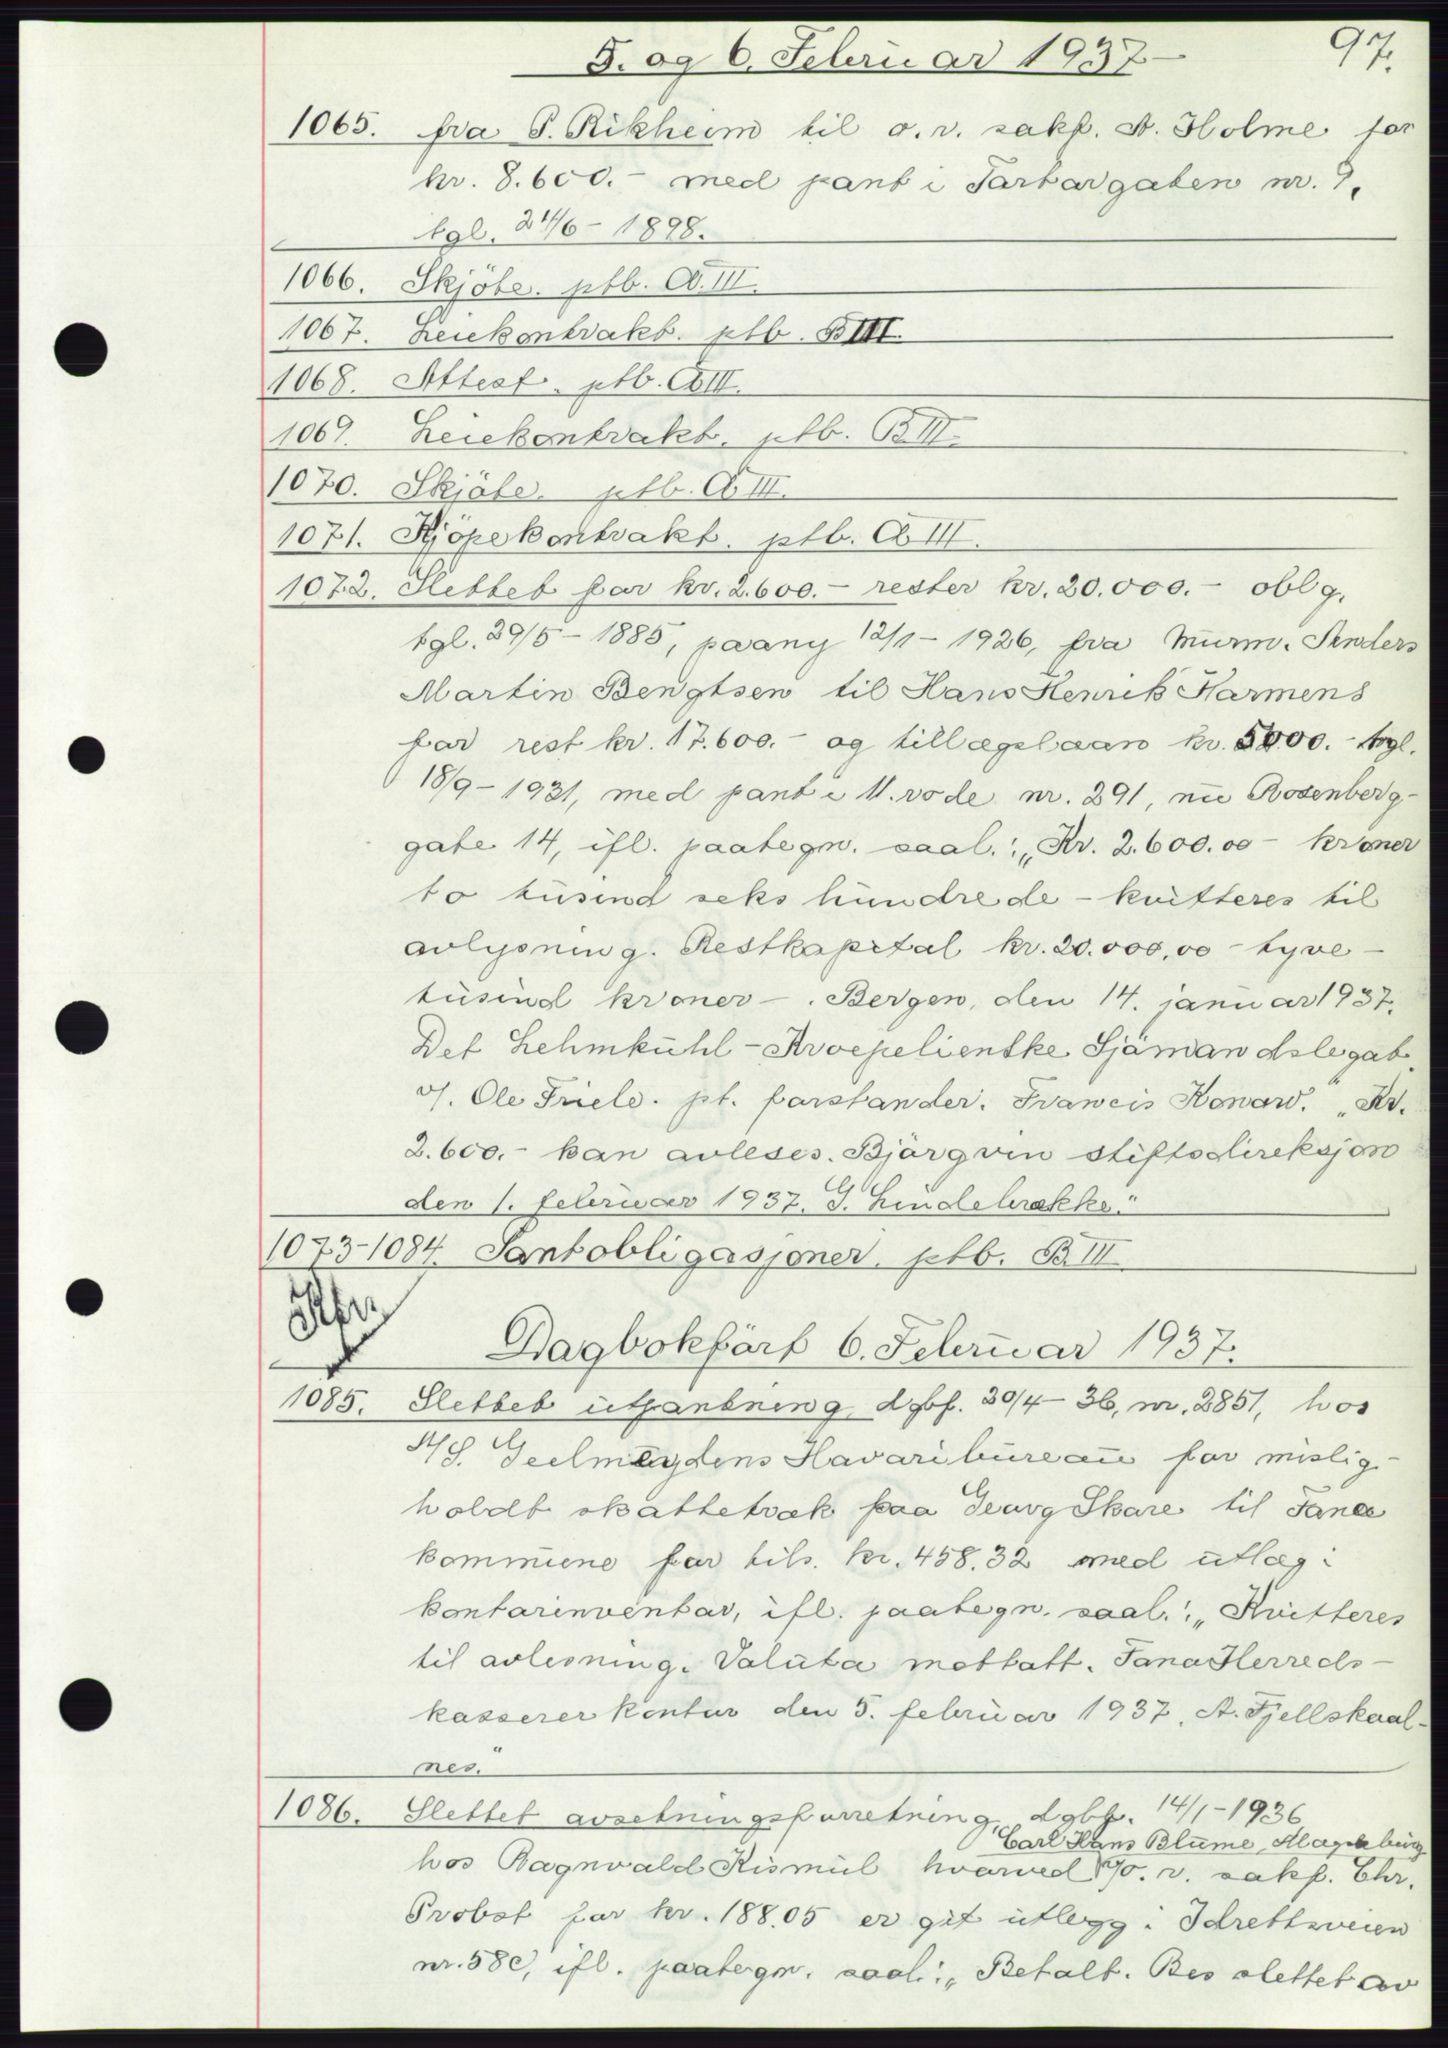 5. og 6. Februar 1937 97.
1065. fra P. Rikheim til o. r. sakf. A. Holme for
kr. 8.600.- med pant i Torvargaten nr. 9,
tgl. 21/6 - 1898.
1066. Skjöte. ptb. A. III.
1067. Leiekontrakt. ptb. B III.
1068. Attest. ptb. A III.
1069. Leiekontrakt. ptb. B III.
1070. Skjöte. ptb. A III.
1071. Kjöpekontrakt. ptb. A III.
1072. Slettet for kr. 2.600.- rester kr. 20.000.- oblg.
tgl. 29/5 - 1885, paany 12/1 - 1926, fra Murm. Anders
Martin Bengtsen til Hans Henrik Harmens
for rest kr. 17.600.- og tillægslaan kr. 5000.- tgl.
18/9 - 1931, med pant i 11. rode nr. 291, nu Rosenberg-
gate 14, ifl. paategn. saal.: „Kr. 2.600.00 - kroner
to tusind seks hundrede - kvitteres til
avlysning. Restkapital kr. 20.000,00 - tyve -
tusind kroner -. Bergen, den 14. januar 1937.
Det Lehmkuhl - Kroepelienske Sjömandslegat.
v/. Ole Friele. pt. forstander. Francis Konow." „Kr.
2.600.- kan avleses. Björgvin stiftsdireksjon
den 1. februar 1937. G. Lindebrække."
1073-1084. Pantobligasjoner. ptb. B. III
Dagbokfört 6. Februar 1937.
1085. Slettet utpantning dgbf. 30/4 - 36, nr. 2851, hos
A/S. Geelmuydens Havaribureau for mislig-
holdt skattetræk paa Georg Skare til Fana
kommune for tils. kr. 458.32 med utlæg i
kontorinventar, ifl. paategn. saal.: „Kvitteres
til avlesning. Valuta mottatt. Fana Herreds-
kassererkontor den 5. februar 1937. A. Fjellskaal-
nes."
1086. Slettet avsetningsforretning, dgbf. 14/1 - 1936
Carl Hans Blume, Magdeburg
hos Ragnvald Kismul hvorved v/o. r. sakf. Chr.
Probst for kr. 188.05 er git utlegg i Idrettsveien
nr. 58c, ifl. paategn. saal.: „Betalt. Bes slettet av